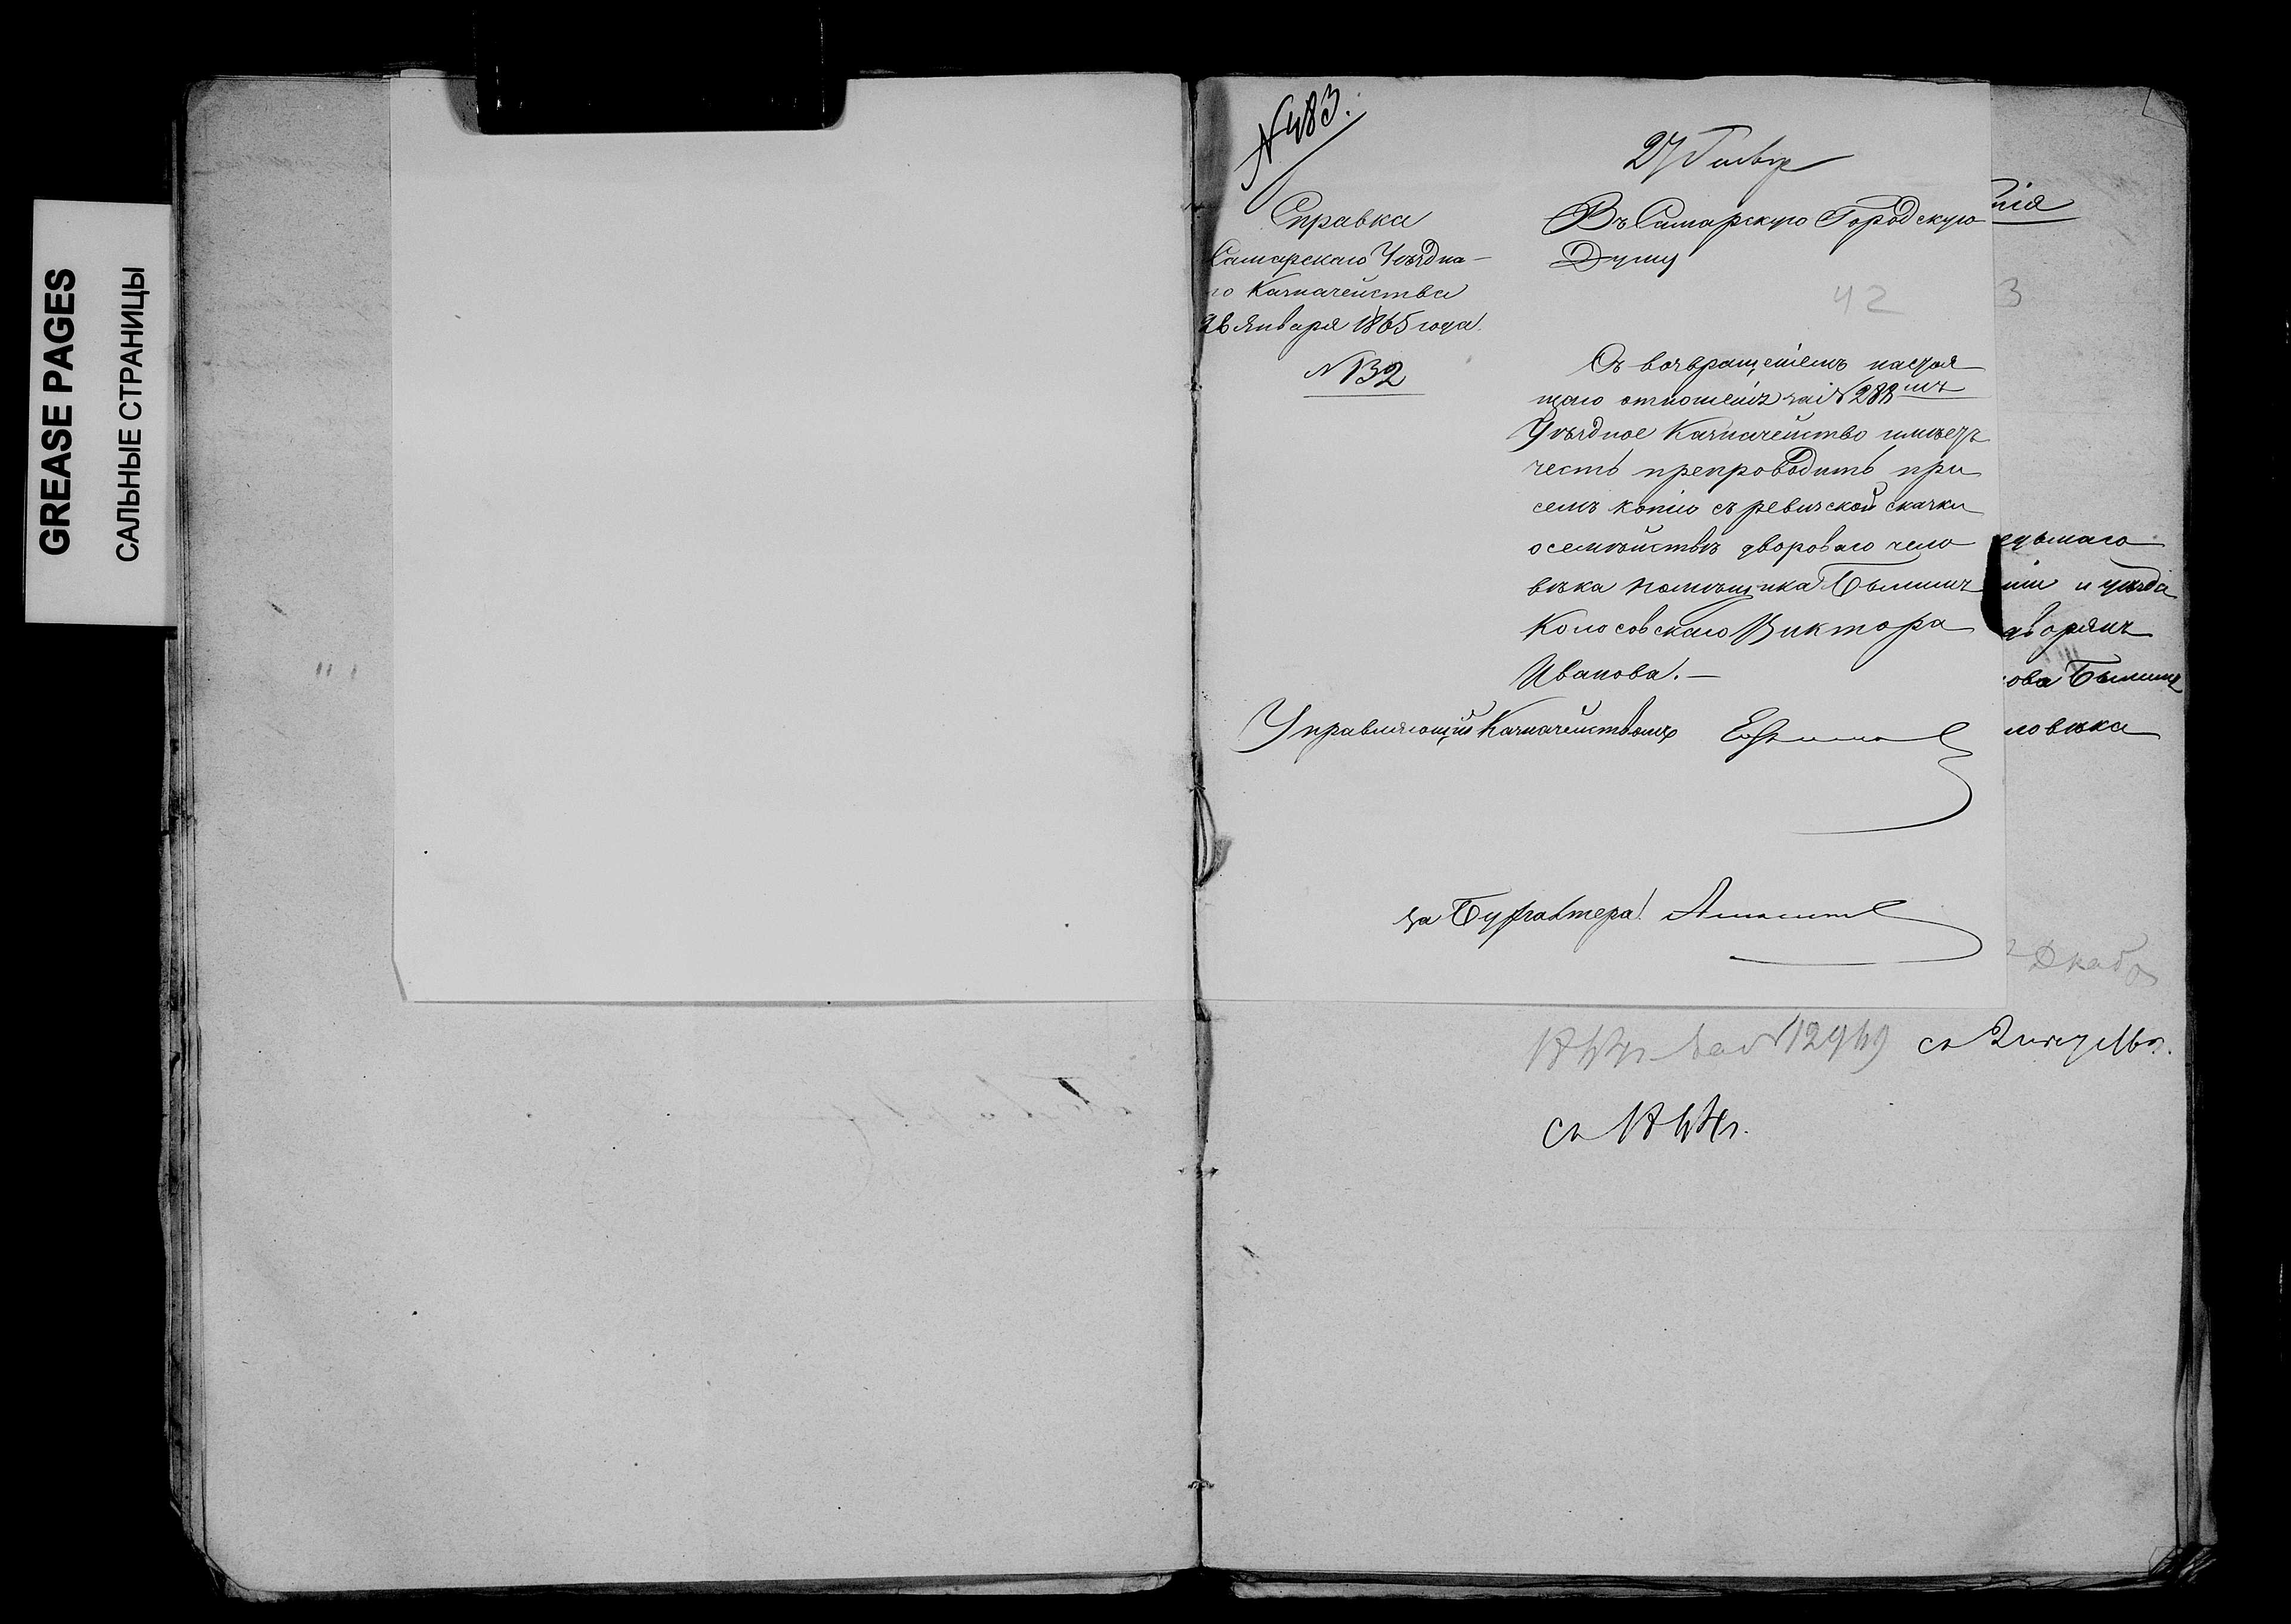 GREASE PAGES
САЛЬНЫЕ СТРАНИЦЫ
№483.
27 Генвар
Справка
Самарскаго Уѣздна-
го Казначейства
26 Января 1865 года.
№132
Въ Самарскую Городскую
Думу
42
Съ возвращеніемъ настоя
щаго отношенія за №288мъ
Уѣздное Казначейство имѣетъ
честь препроводить при
семъ копію съ ревизской сказки
о семействѣ двороваго чело
вѣка помѣщика
Колосовскаго Виктора
Иванова.—
Управляющій Казначействомъ
за Бухгалтера
3
едьмаго
ніи и уѣзда
дворянъ
ова
ловѣка
Декабр
за №12949